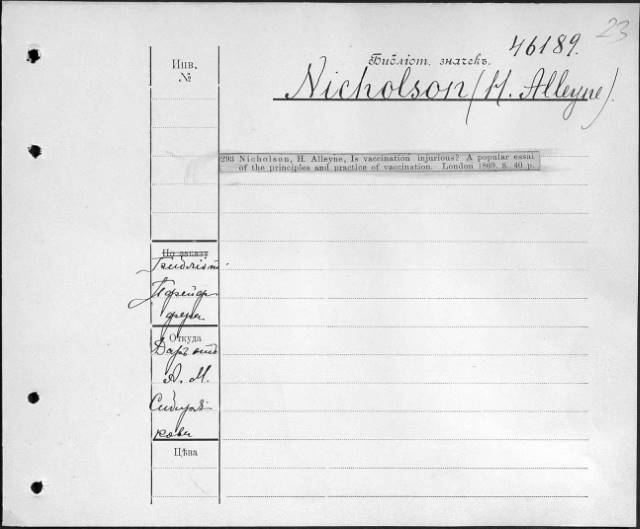 23
46189.
Библіот. значекъ.
Nicholson (H. Alleyne).
Инв.
№
293 Nicholson, H. Alleyne, Is vaccination injurious? A popular essai
of the principles and practice of vaccination. London 1869, 8. 40 p.
По заказу
Библіот
Пфейф-
фера
Откуда
Даръ отъ
А. М.
Сибиря-
кова
Цѣна